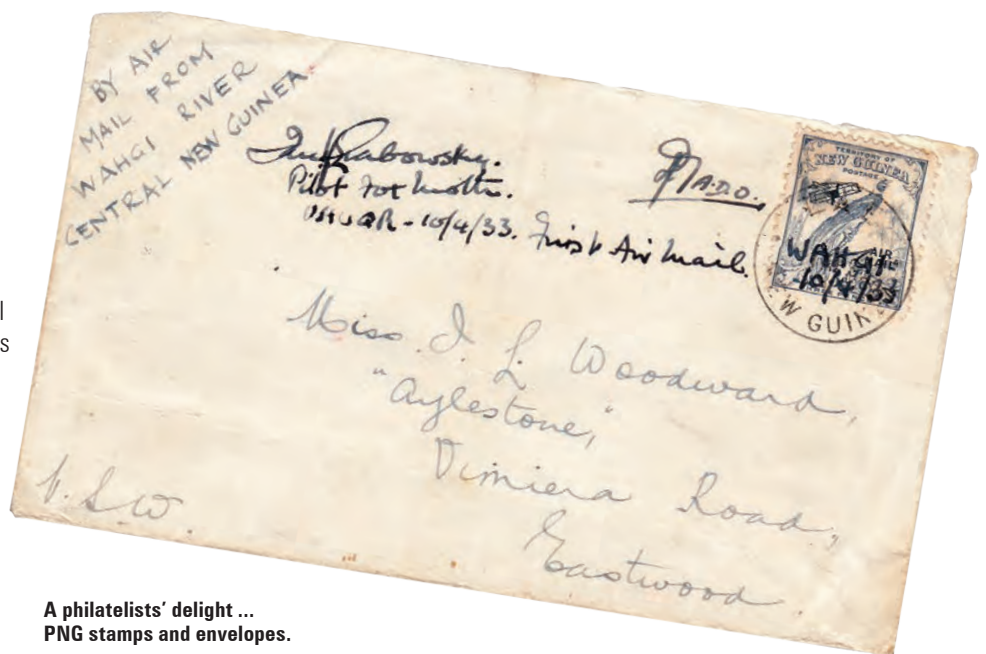 BY AIR
MAIL FROM
WAHGI RIVER
CENTRAL NEW GUINEA
Grabowsky.
Pilot Fox Moth.
10/4/33. First Air Mail.
A.D.O.
TERRITORY OF
NEW GUINEA
POSTAGE
AIR
MAIL
WAHGI
10/4/33
W GUIN
Miss. I. L. Woodward,
"Aylestone,"
Vimiera Road,
Eastwood.
N.S.W.
l
s
A philatelists' delight ...
PNG stamps and envelopes.